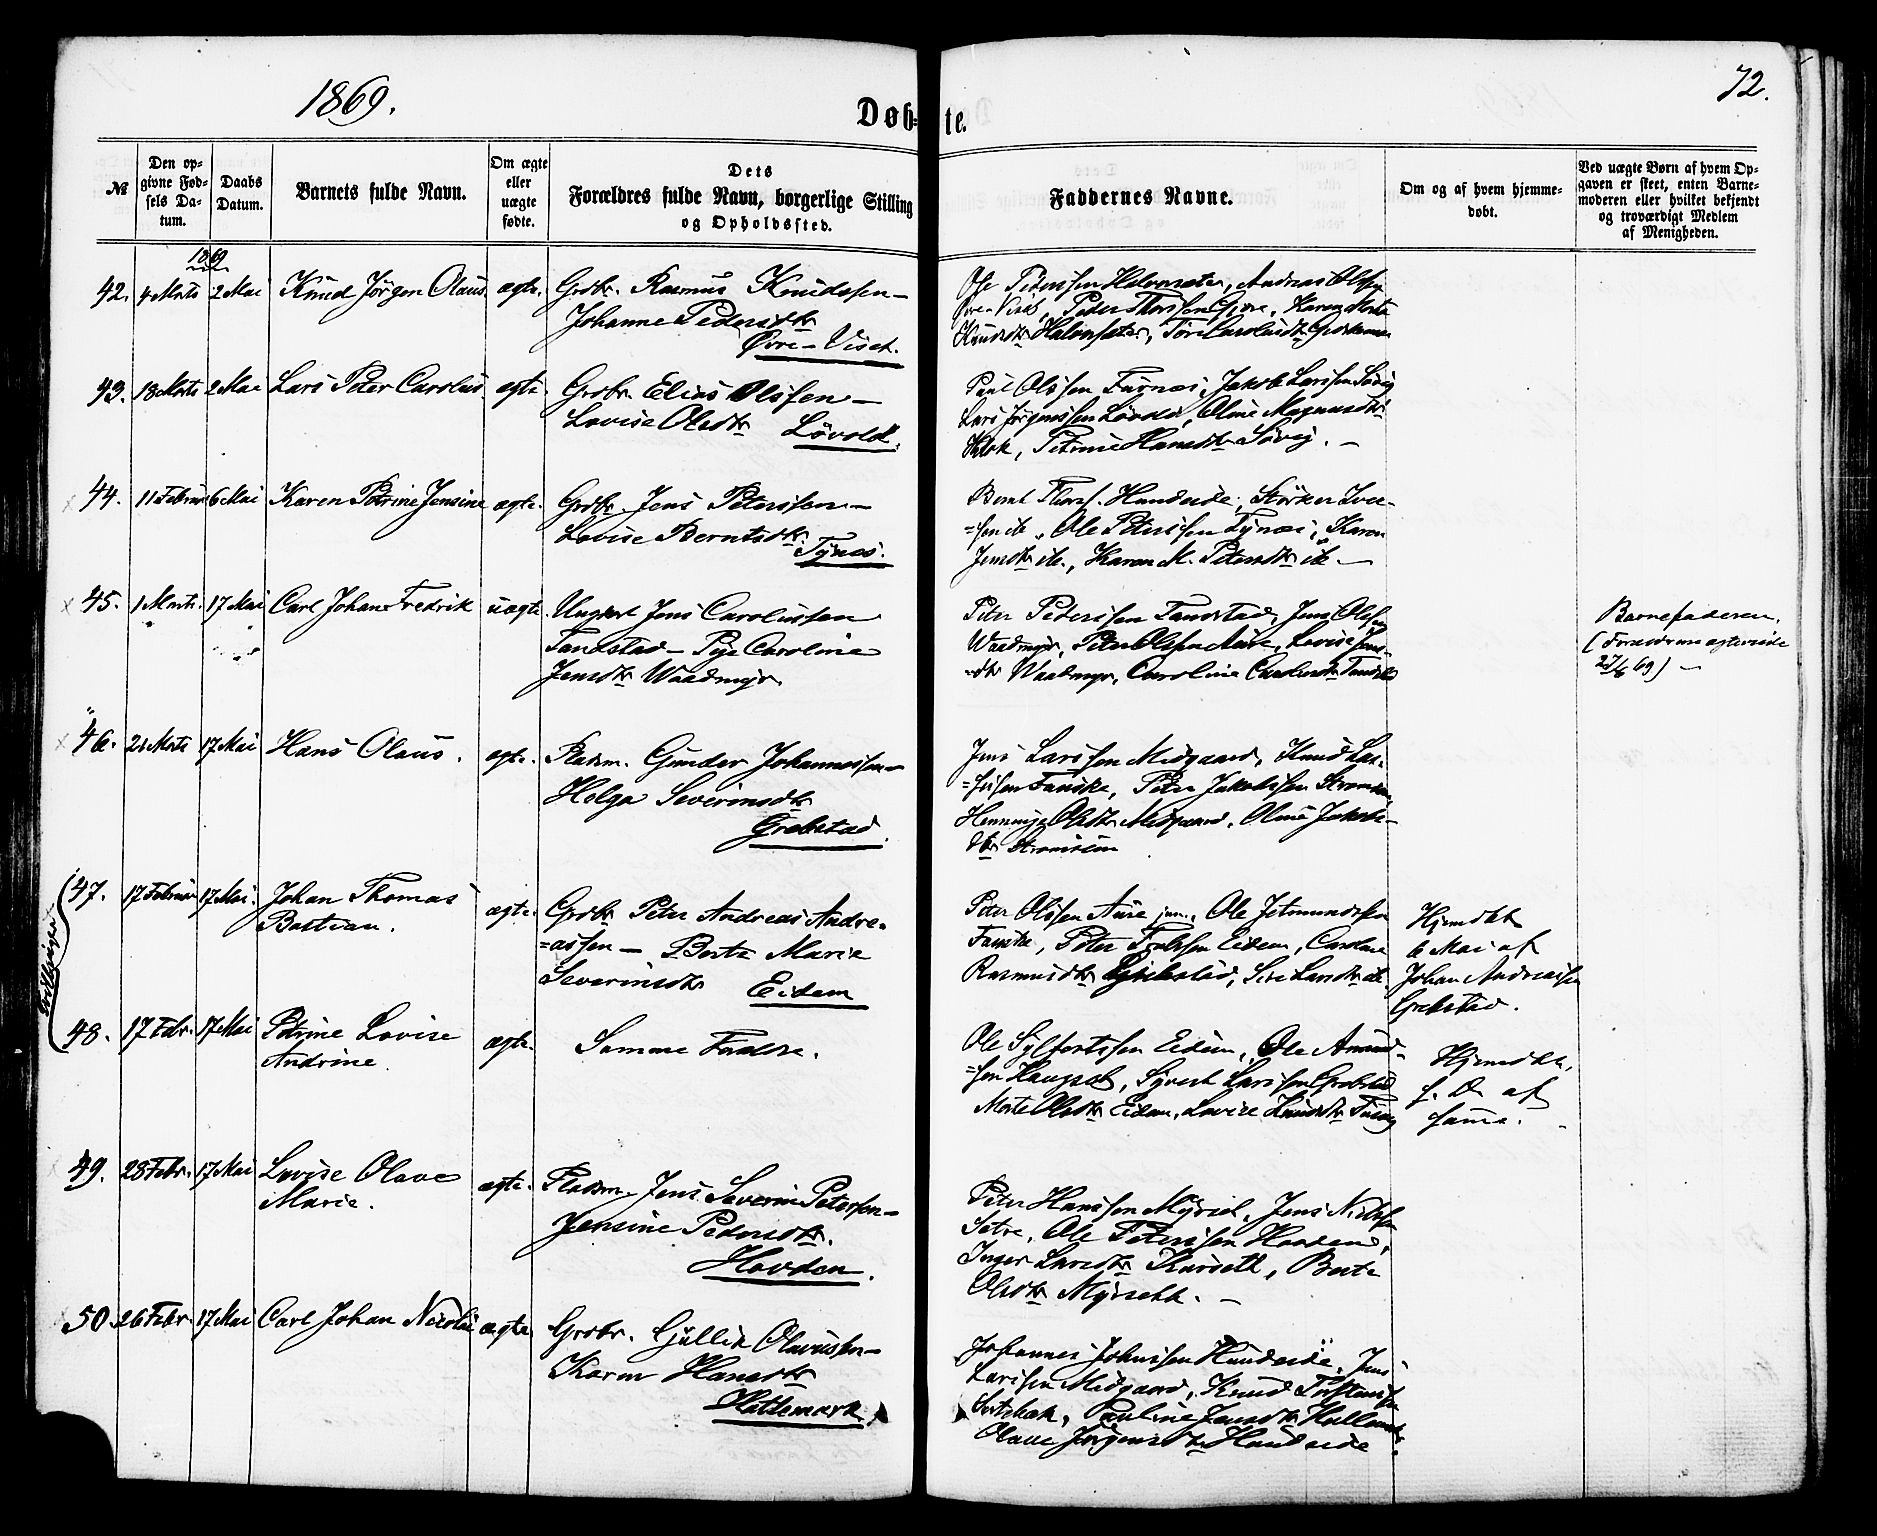 1869.
Døb-te.
72.
№
Den op-
givne Fød-
sels Da-
tum.
Daabs
Datum.
Barnets fulde Navn.
Om ægte
eller
uægte
fødte.
Dets
Forældres fulde Navn, borgerlige Stilling
og Opholdssted.
Faddernes Navne.
Om og af hvem hjemme-
døbt.
Ved uægte Børn af hvem Op-
gaven er skeet, enten Barne-
moderen eller hvilket bekjendt
og troværdigt Medlem
af Menigheden.
1869
42. 4 Marts 2 Mai Knud Jørgen Olaus ægte. Grdbr. Rasmus Knudssen –
Johanne Pedersdtr
Øvre-Viset.
Ole Peterssen Halvorsæter, Andreas Olssen
Øvre-Viset, Peder Thorssen Gjære, Karen Marta
Knudsdtr Halvorsæter,
43. 18 Marts 2 Mai Lars Peter Carolus ægte Grdbr. Elias Olssen –
Lovise Olsdtr Løvold.
Paul Olssen Tuynæs, Jakob Larssen Søvig
Lars Jørgenssen Løvold, Oline Magnusdtr
Klok, Petrine Hansdtr Søvig. –
44. 11 Februar 6 Mai Karen Petrine Jensine ægte. Grdbr. Jens Peterssen –
Lovise Berntsdtr. Tynes.
Bernt Thorss. Hundeide, Størker Iver-
=sen ib., Ole Peterssen Tynæs, Karen
Jensdtr ib., Karen M. Petersdtr ib. –
45. 1 Marts. 17 Mai Carl Johan Fredrik uægte. Ungkarl Jens Carolussen
Tandstad – Pige Caroline
Jensdtr Waadmyr.
Peter Pederssen Tandstad, Jens Olssen
Waadmyr, Peter Olssen Aure, Lovise Jens-
-dtr Waadmyr, Caroline Carolusdtr Tandstad
Barnefaderen.
(Forældrene ægteviede
27/6 69) –
46. 21 Marts 17 Mai Hans Olaus. ægte. Pladsm. Gunder Johannessen –
Helga Severinsdtr
Grebstad.
Jens Larssen Midgaard, Knud Las-
=sesen Fauske, Peter Jakobssen Strømmen,
Henninge Olsdtr Midgaard, Oline Jakobs-
dtr Strømmen
Tvillinger.
47. 17 Februar 17 Mai. Johan Thomas
Bastian. ægte. Grdbr Peter Andreas Andre-
=assen – Berte Marie
Severinsdtr Eidem
Peter Olssen Aure jun., Ole Jetmundssen
Fauske, Peter Eidem, Caroline
Rasmusdtr Grebstad, Siri Larsdtr ib
Hjemdbt
6 Mai af
Johan Andreassen
Grebstad.
48. 17 Febr. 17 Mai Petrine Lovise
Andrine. ægte. Samme Forældre.
Ole Sylfestssen Eidem, Ole Amund-
=sen Haugset, Syvert Larssen Grebstad
Marte Olsdtr Eidem, Lovise Knudsdtr
Hjemdbt.
s. D. af
samme.
49. 28 Febr. 17 Mai Lovise Olave
Marie. ægte. Pladsm. Jens Severin Peterssen –
Jensine Pedersdtr.
Hovden.
Peter Hanssen Myrset, Jens Nielssen
Sætre, Ole Peterssen Hovden,
Inger Larsdtr Kurseth, Berte
Olsdtr Myrsæth. –
50. 26 Febr. 17 Mai Carl Johan Nicolai ægte Grdbr. Gullik Olaussen –
Karen Hansdtr
Hattemark.
Johannes Johnssen Hundeide, Jens
Larssen Midgaard, Knud Torstenssen
Pauline Jensdtr
Olave Jørgensdtr Hundeide